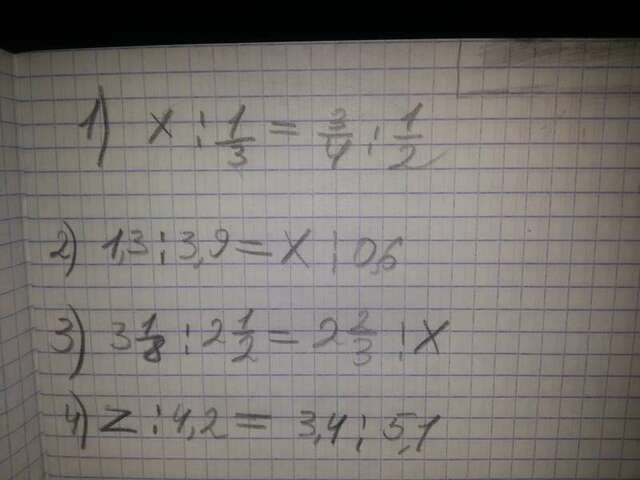 1) x : 1/3 = 3/4 : 1/2
2) 1,3 : 3,9 = x : 0,6
3) 3 1/8 : 2 1/2 = 2 2/3 : x
4) z : 4,2 = 3,4 : 5,1